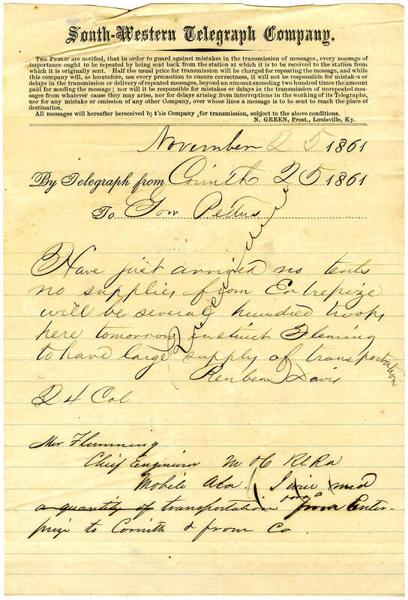 South-Western Telegraph Company.
THE PUBLIC are notified, that in order to guard against mistakes in the transmission of messages, every message of
importance ought to be repeated by being sent back from the station at which it is to be received to the station from
which it is originally sent. Half the usual price for transmission will be charged for repeating the message, and while
this company will, as heretofore, use every precaution to ensure correctness, it will not be responsible for mistakes or
delays in the transmission or delivery of repeated messages, beyond an amount exceeding two hundred times the amount
paid for sending the message; nor will it be responsible for mistakes or delays in the transmission of unrepeated messages
from whatever cause they may arise, nor for delays arising from interruptions in the working of its Telegraphs,
nor for any mistake or omission of any other Company, over whose lines a message is to be sent to reach the place of
destination.
All messages will hereafter be received by this Company for transmission, subject to the above conditions.
N. GREEN, Prest., Louisville, Ky.
November 25 1861
By Telegraph from Corinth 25 1861
To Gov Pettus
Have just arrived no tents
no supplies from Enterpize
will be several hundred troops
here tomorrow instruct Fleming
to have large supply of transportation
Reuben Davis
24 Col
Mr Flemming
Chief Engineer M & O R R Co
Mobile Ala
a quantity of transportation from Enter-
prize to Corinth & from Co